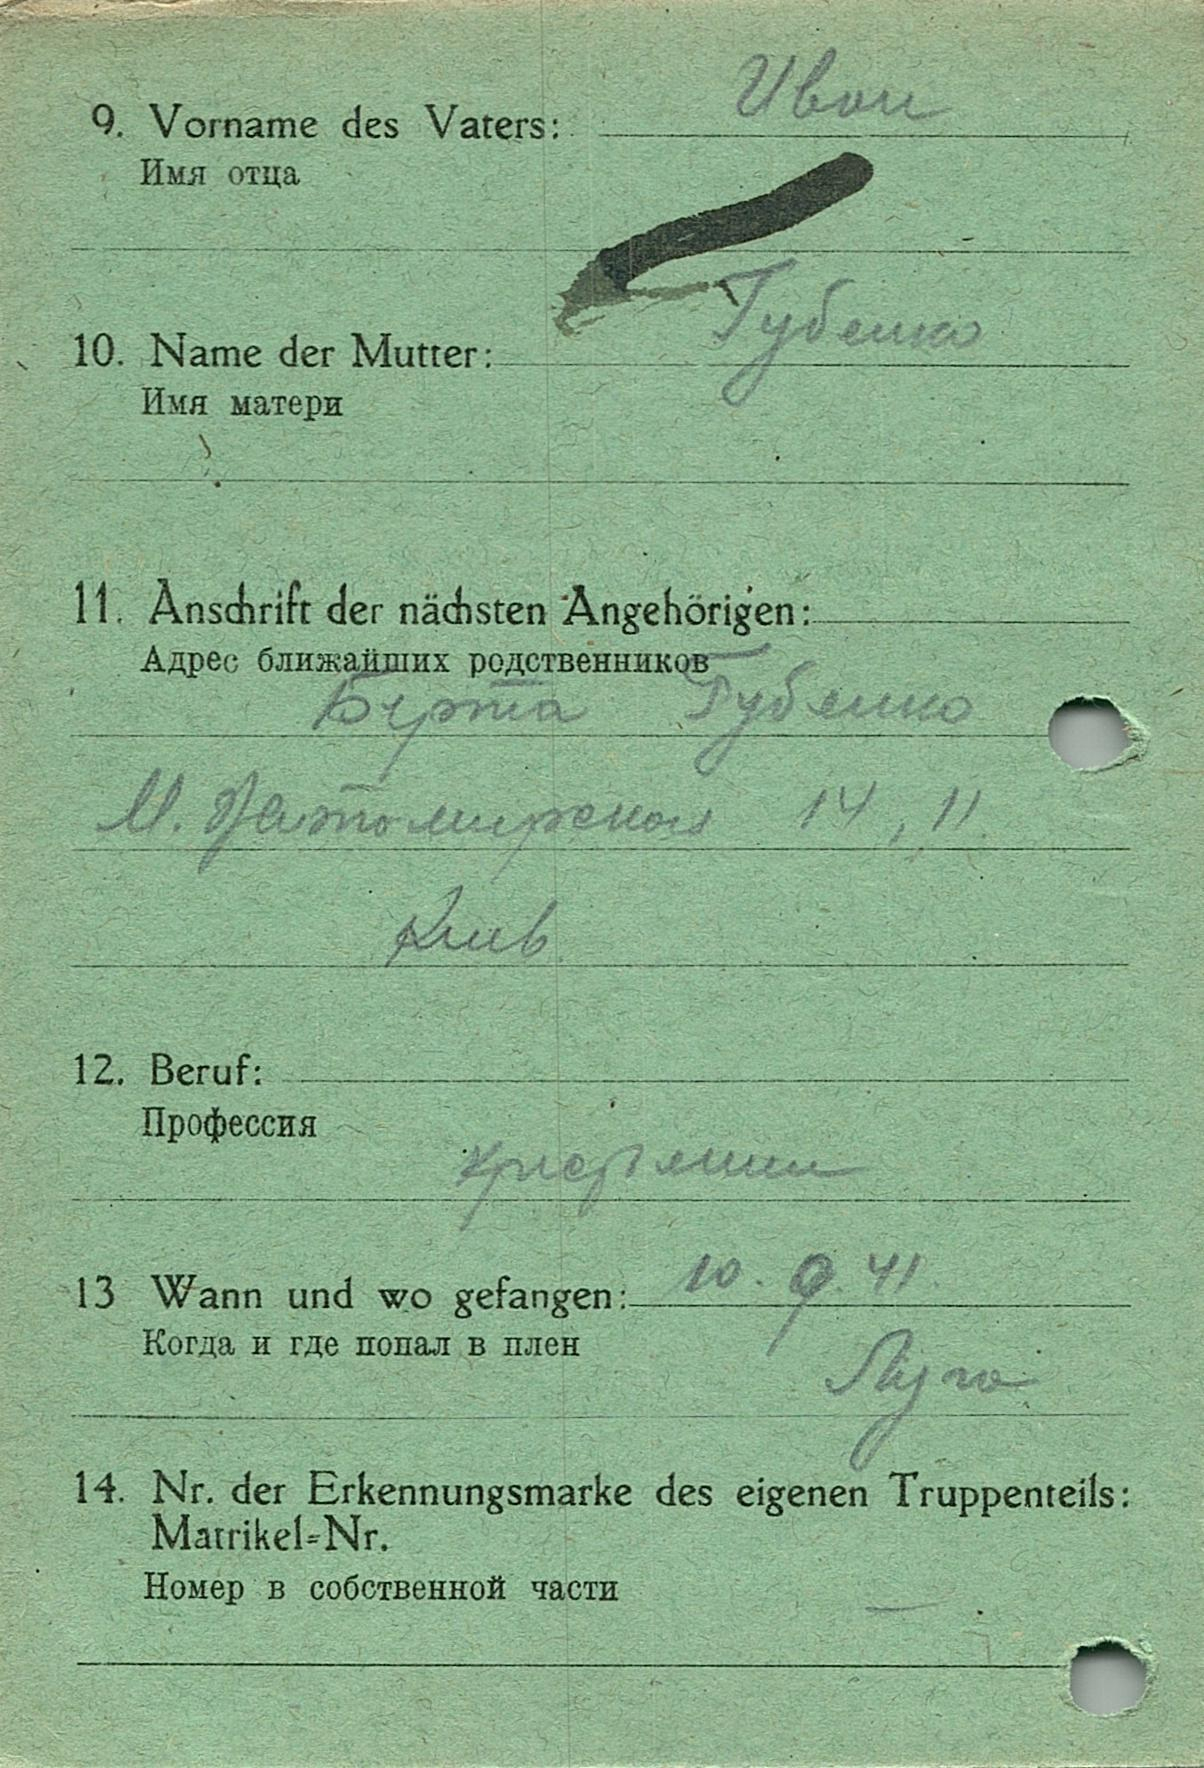 Иван
9. Vorname des Vaters:
Имя отца
Губенко
10. Name der Mutter:
Имя матери
11. Anschrift der nächsten Angehörigen:
Адрес ближайших родственников
Берта Губенко
М. 14, 11.
Киев
12. Beruf:
Профессия
крестянин
13 Wann und wo gefangen: 10. 9. 41.
Когда и где попал в плен
14. Nr. der Erkennungsmarke des eigenen Truppenteils:
Matrikel=Nr.
Номер в собственной части
—